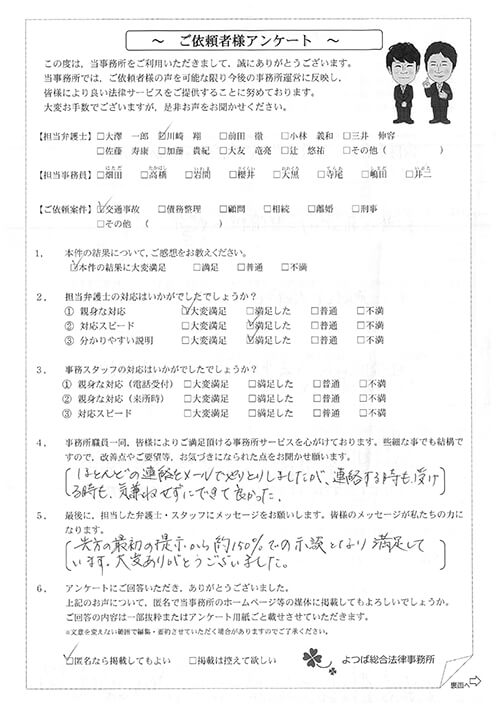 ～ ご依頼者様アンケート ～
この度は，当事務所をご利用いただきまして，誠にありがとうございます。
当事務所では，ご依頼者様の声を可能な限り今後の事務所運営に反映し，
皆様により良い法律サービスをご提供することに努めております。
大変お手数でございますが，是非お声をお聞かせください。
【担当弁護士】□大澤 一郎 ☑川﨑 翔 □前田 徹 □小林 義和 □三井 伸容
□佐藤 寿康 □加藤 貴紀 □大友 竜亮 □辻 悠祐 □その他（ ）
【担当事務員】□畑田 □高橋 □岩間 □櫻井 □大黒 □寺尾 □嶋田 □井二
【ご依頼案件】☑交通事故 □債務整理 □顧問 □相続 □離婚 □刑事
□その他 （ ）
１． 本件の結果について，ご感想をお教えください。
☑本件の結果に大変満足 □満足 □普通 □不満
２． 担当弁護士の対応はいかがでしたでしょうか？
① 親身な対応 ☑大変満足 □満足した □普通 □不満
② 対応スピード □大変満足 ☑満足した □普通 □不満
③ 分かりやすい説明 □大変満足 ☑満足した □普通 □不満
３． 事務スタッフの対応はいかがでしたでしょうか？
① 親身な対応（電話受付） □大変満足 □満足した □普通 □不満
② 親身な対応（来所時） □大変満足 □満足した □普通 □不満
③ 対応スピード □大変満足 □満足した □普通 □不満
４． 事務所職員一同，皆様によりご満足頂ける事務所サービスを心がけております。些細な事でも結構で
すので，改善点やご要望等，お気づきになられた点をお聞かせ願います。
ほとんどの連絡をメールでやりとりしましたが、連絡する時も受け
る時も、気兼ねせずにできて良かった。
５． 最後に，担当した弁護士・スタッフにメッセージをお願いします。皆様のメッセージが私たちの力に
なります。
先方の最初の提示から約150%での示談となり満足して
います。大変ありがとうございました。
６． アンケートにご回答いただき，ありがとうございました。
上記のお声について，匿名で当事務所のホームページ等の媒体に掲載してもよろしいでしょうか。
ご回答の内容は一部抜粋またはアンケート用紙ごと載せさせていただきます。
※文意を変えない範囲で編集・要約させていただく場合がありますのでご了承ください。
☑匿名なら掲載してもよい □掲載は控えて欲しい よつば総合法律事務所
裏面へ